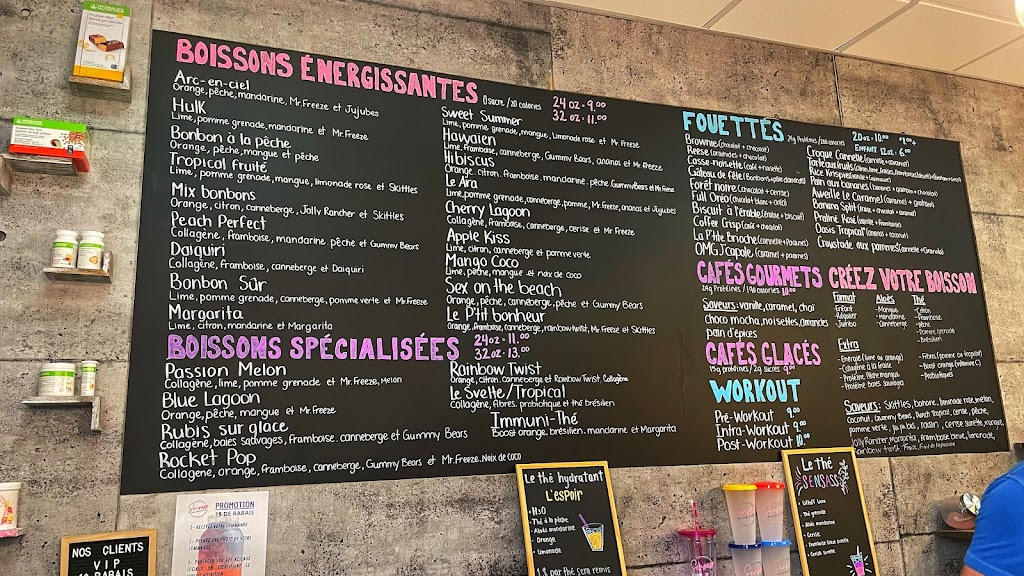 BOISSONS ÉNERGISSANTES
0 sucre / 20 calories
24 oz - 9.00
32 oz - 11.00
Arc-en-ciel
Orange, pêche, mandarine, Mr.Freeze et Jujubes
Hulk
Lime, pomme grenade, mandarine et Mr.Freeze
Bonbon à la pêche
Orange, pêche, mangue et pêche
Tropical fruité
Lime, pomme grenade, mangue, limonade rose et Skittles
Mix bonbons
Orange, citron, canneberge, Jolly Rancher et Skittles
Peach Perfect
Collagène, framboise, mandarine pêche et Gummy Bears
Daiquiri
Collagène, framboise, canneberge et Daiquiri
Bonbon Sûr
Lime, pomme grenade, canneberge, pomme verte et Mr.Freeze
Margarita
Lime, citron, mandarine et Margarita
Sweet Summer
Lime, pomme grenade, mangue, Limonade rose et Mr Freeze
Hawaien
Lime, framboise, canneberge, Gummy Bears, ananas et Mr.Freeze
Hibiscus
Orange, citron, framboise, mandarine, pêche, Gummy Bears et Mr Freeze
Le Ara
Lime, pomme grenade, canneberge, pomme, Mr.Freeze, ananas et Jujubes
Cherry Lagoon
Collagène, framboise, canneberge, cerise et Mr.Freeze
Apple Kiss
Lime, citron, canneberge et pomme verte
Mango Coco
Lime, pêche, mangue et noix de coco
Sex on the beach
Orange, pêche, canneberge, pêche et Gummy Bears
Le P'tit bonheur
Orange, framboise, canneberge, rainbow twist, Mr.Freeze et Skittles
BOISSONS SPÉCIALISÉES
24oz - 11.00
32oz - 13.00
Passion Melon
Collagène, lime, pomme grenade et Mr.Freeze, Melon
Blue Lagoon
Orange, pêche, mangue et Mr.Freeze
Rubis sur glace
Collagène, baies sauvages, framboise, canneberge et Gummy Bears
Rocket Pop
Collagène, orange, framboise, canneberge, Gummy Bears et Mr.Freeze, Noix de coco
Rainbow Twist
Orange, citron, canneberge et Rainbow Twist, Collagène
Le Svelte/Tropical
Collagène, fibres, probiotique et thé brésilien
Immuni-Thé
Boost orange, brésilien, mandarine et Margarita
FOUETTÉS
20oz - 10.00
Enfant 12oz - 6.00
Brownie (chocolat + chocolat)
Reese (arachides + chocolat)
Casse-noisette (café + noisette)
Gâteau de fête
Forêt noire (chocolat + cerise)
Full Oréo (chocolat blanc + oréo)
Biscuit à l'érable (érable + biscuit)
Coffee Crisp (café + chocolat)
La P'tite Brioche (cannelle + pacanes)
OMG J'capote (caramel + pacanes)
Croque Cannelle (cannelle + caramel)
Rice Krispies
Pain aux bananes
Aweille Le Caramel
Banana Split
Praliné Rosé
Oasis Tropical
Croustade aux pommes (cannelle + caramel)
CAFÉS GOURMETS
24g Protéines / 190 calories 10.00
Saveurs: vanille, caramel, chaï
choco mocha, noisettes, amandes
pain d'épices
CAFÉS GLACÉS
15g protéines / 2g sucres 9.00
WORKOUT
Pré-Workout 9.00
Intra-Workout 9.00
Post-Workout 10.00
CRÉEZ VOTRE BOISSON
Format
Enfant
Régulier
Jumbo
Aloès
- Mangue
- Mandarine
- Canneberge
Thé
- Citron
- Framboise
- Pêche
- Pomme grenade
- Brésilien
Extra
- Énergie (lime ou orange)
- Collagène à la fraise
- Protéine Pêche mangue
- Protéine baies sauvages
- Boost orange (vitamine C)
- Probiotiques
Saveurs: Skittles, banane, limonade rose, melon,
coconut, Gummy Bears, Punch tropical, cerise, pêche,
pomme verte, jujubes, raisin, cerise sûrette, mangue,
Jolly Rancher, Margarita, framboise bleue, limonade,
Rainbow twist
Le thé hydratant
L'espoir
- H2O
- Thé à la pêche
- Aloès mandarine
- Orange
- Limonade
1$ par thé sera remis
Le thé
SENSASS
- Thé grenade
- Aloès mandarine
- Cerise
- Framboise bleue surette
- Cerise surette
PROMOTION
1$ DE RABAIS
NOS CLIENTS
VIP
HERBALIFE